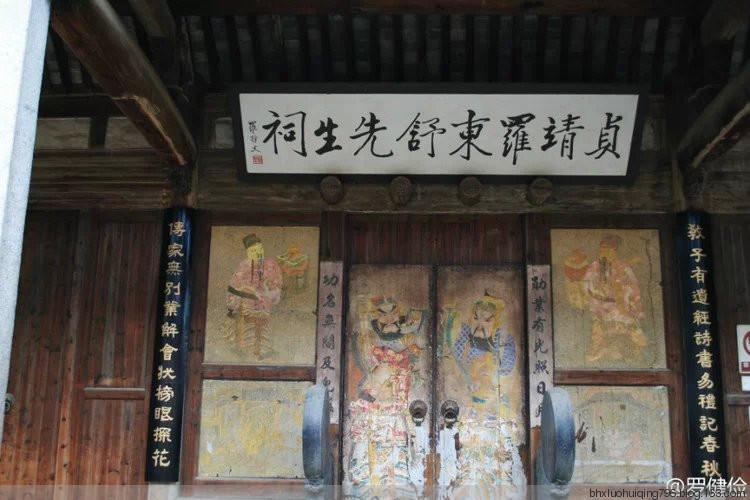 貞靖羅東舒先生祠
羅哲文
教子有遺經詩書易禮記春秋
勛業有光照日
功名無間及兒
傳家無別業解會狀榜眼探花
@罗健俭
bhxluohuiqing796.blog.163.com